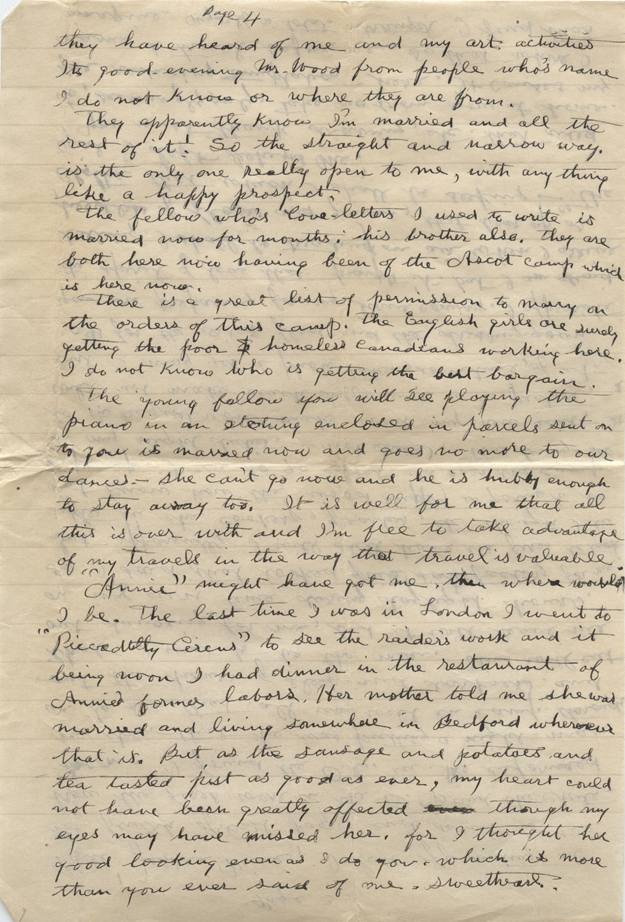 Page 4
they have heard of me and my art. activities
Its good-evening Mr. Wood from people who's name
I do not know or where they are from.
They apparently know I'm married and all the
rest of it! So the straight and narrow way.
is the only one really open to me, with any thing
like a happy prospect.
The fellow who's love-letters I used to write is
married now for months. his brother also. they are
both here now having been of the Ascot camp which
is here now.
There is a great list of permission to marry on
the orders of this camp. The English girls are surely
getting the poor homeless Canadians working here.
I do not know who is getting the best bargain.
The young fellow you will see playing the
piano in an etching enclosed in parcels sent on
to you is married now and goes no more to our
dances. - she can't go now and he is hubby enough
to stay away too. It is well for me that all
this is over with and I'm free to take advantage
of my travels in the way that travel is valuable.
"Annie" might have got me. then where would
I be. The last time I was in London I went to
"Piccadilly Circus" to see the raider's work and it
being noon I had dinner in the restaurant of
Annie's former labors. Her mother told me she was
married and living somewhere in Bedford wherever
that is. But as the sausage and potatoes and
tea tasted just as good as ever, my heart could
not have been greatly affected though my
eyes may have missed her. for I thought her
good looking even as I do you. which is more
than you ever said of me. sweetheart.